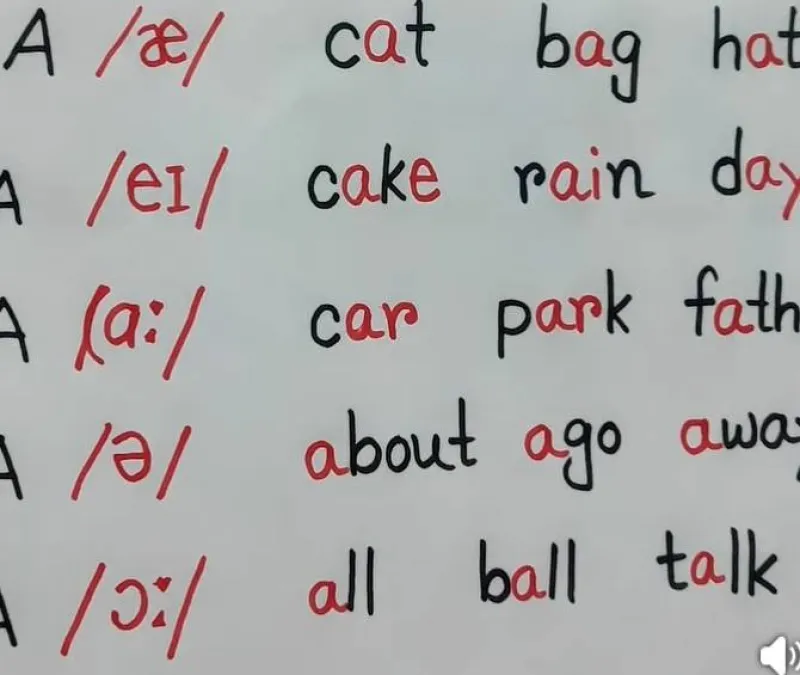 A /æ/ cat bag hat
A /eɪ/ cake rain day
A /ɑː/ car park fath
A /ə/ about ago away
A /ɔː/ all ball talk